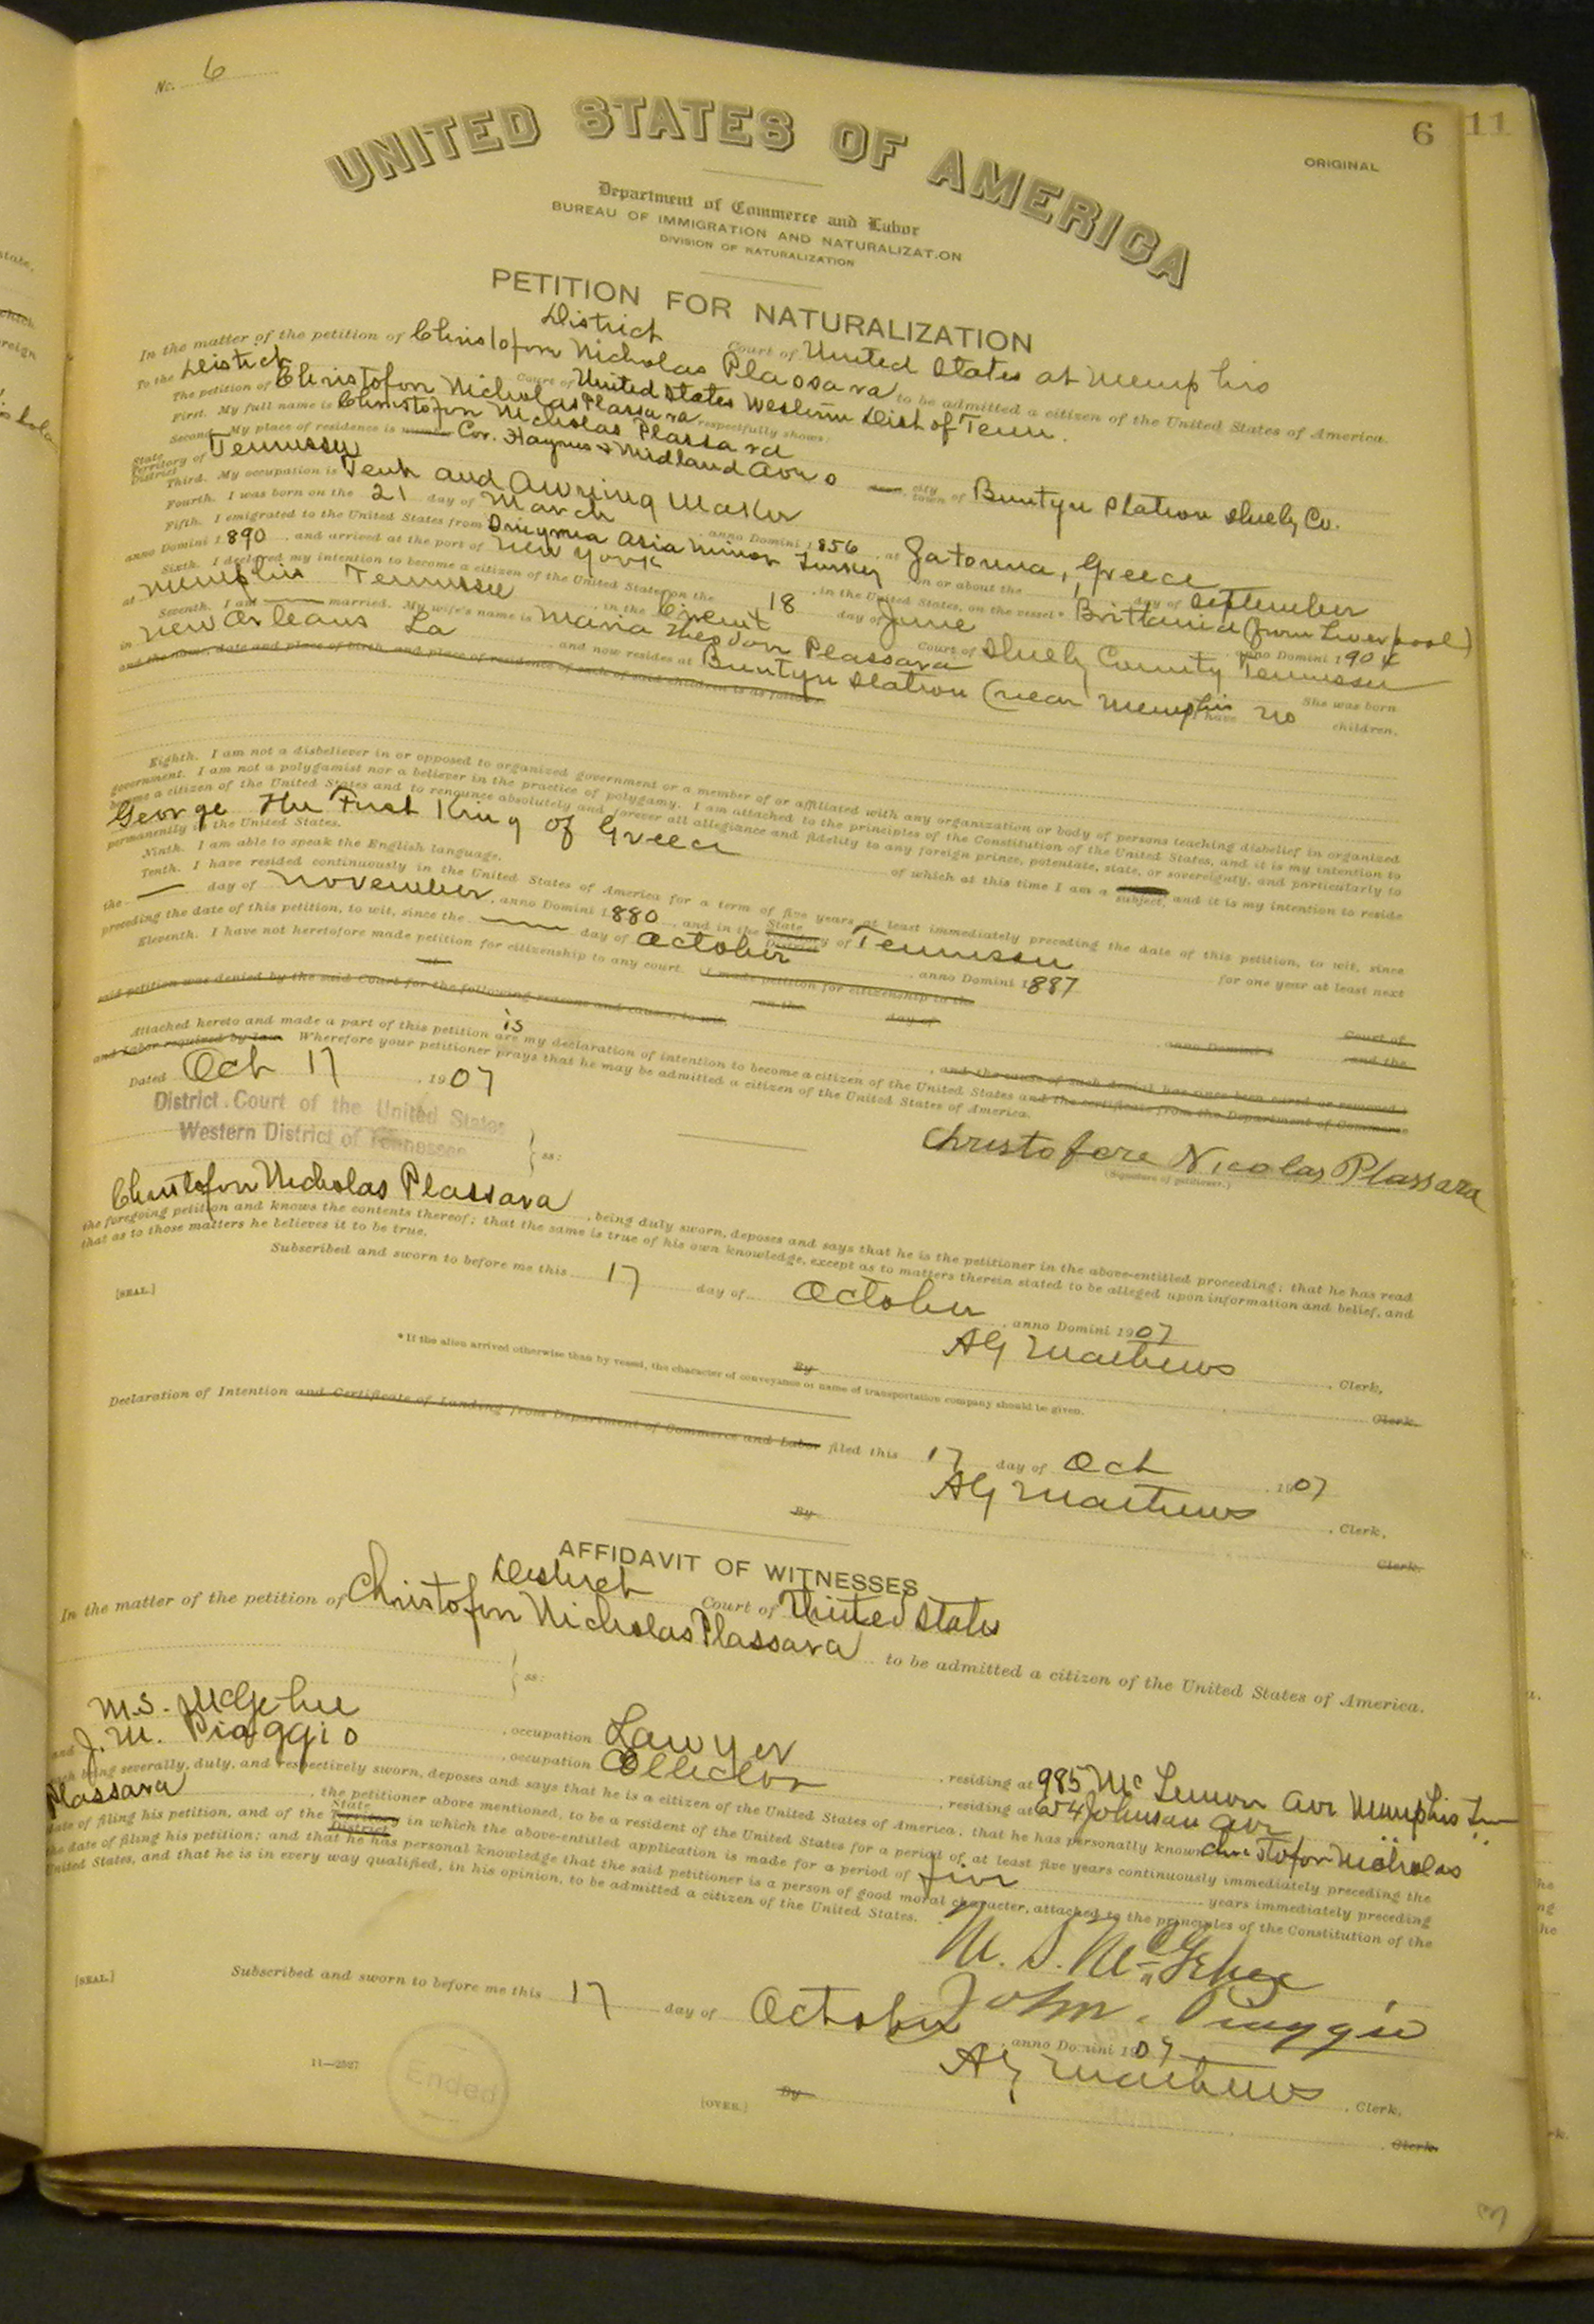 No. 6
6 11
ORIGINAL
UNITED STATES OF AMERICA
Department of Commerce and Labor
BUREAU OF IMMIGRATION AND NATURALIZATION
DIVISION OF NATURALIZATION
PETITION FOR NATURALIZATION
District Court of United States at Memphis
In the matter of the petition of Christofore Nicholas Plassara to be admitted a citizen of the United States of America.
To the District Court of United States Western Dist of Tenn.
The petition of Christofore Nicholas Plassara respectfully shows:
First. My full name is Christofore Nicholas Plassara
Second. My place of residence is number Cor. Haynes & Midland Aves city town of Buntyn Station Shelby Co.
State Territory District of Tennessee
Third. My occupation is Tent and Awning Maker
Fourth. I was born on the 21 day of March anno Domini 1856, at Zatouna, Greece
Fifth. I emigrated to the United States from Asia Minor Turkey on or about the day of September
anno Domini 1890, and arrived at the port of New York, in the United States, on the vessel* Brittania (from Liverpool)
Sixth. I declared my intention to become a citizen of the United States on the 18 day of June anno Domini 190
at Memphis Tennessee, in the Circuit Court of Shelby County Tennessee
Seventh. I am married. My wife's name is Maria Theodore Plassara She was born
in New Orleans La and now resides at Buntyn Station (near Memphis I have no children,
and the name, date and place of birth, and place of residence of each of said children is as follows:
Eighth. I am not a disbeliever in or opposed to organized government or a member of or affiliated with any organization or body of persons teaching disbelief in organized
government. I am not a polygamist nor a believer in the practice of polygamy. I am attached to the principles of the Constitution of the United States, and it is my intention to
become a citizen of the United States and to renounce absolutely and forever all allegiance and fidelity to any foreign prince, potentate, state, or sovereignty, and particularly to
George the First King of Greece of which at this time I am a subject, and it is my intention to reside
permanently in the United States.
Ninth. I am able to speak the English language.
Tenth. I have resided continuously in the United States of America for a term of five years at least immediately preceding the date of this petition, to wit, since
the — day of November, anno Domini 1880, and in the State Territory District of Tennessee for one year at least next
preceding the date of this petition, to wit, since the — day of October, anno Domini 1887
Eleventh. I have not heretofore made petition for citizenship to any court. I made petition for citizenship to the Court of
at on the day of, anno Domini 1 and the
said petition was denied by the said Court for the following reasons and causes, to wit, and the cause of such denial has since been cured or removed.
Attached hereto and made a part of this petition are is my declaration of intention to become a citizen of the United States and the certificate from the Department of Commerce
and Labor required by law. Wherefore your petitioner prays that he may be admitted a citizen of the United States of America.
Dated Oct 17, 1907
Christofore Nicolas Plassara
(Signature of petitioner.)
District Court of the United States
Western District of Tennessee
ss:
Christofore Nicholas Plassara, being duly sworn, deposes and says that he is the petitioner in the above-entitled proceeding; that he has read
the foregoing petition and knows the contents thereof; that the same is true of his own knowledge, except as to matters therein stated to be alleged upon information and belief, and
that as to those matters he believes it to be true.
Subscribed and sworn to before me this 17 day of October, anno Domini 1907
[SEAL.]
AG Mathews, Clerk.
By Clerk.
*If the alien arrived otherwise than by vessel, the character of conveyance or name of transportation company should be given.
Declaration of Intention and Certificate of Landing from Department of Commerce and Labor filed this 17 day of Oct, 1907
AG Mathews, Clerk.
By Clerk.
AFFIDAVIT OF WITNESSES
District Court of United States
In the matter of the petition of Christofore Nicholas Plassara to be admitted a citizen of the United States of America.
ss:
M.S. McGehee, occupation Lawyer, residing at 985 McLemore Ave Memphis
and J. M. Piaggio, occupation Collector, residing at Johnson Ave
each being severally, duly, and respectively sworn, deposes and says that he is a citizen of the United States of America, that he has personally known Christofore Nicholas
Plassara, the petitioner above mentioned, to be a resident of the United States for a period of at least five years continuously immediately preceding the
date of filing his petition, and of the State Territory District in which the above-entitled application is made for a period of five years immediately preceding
the date of filing his petition; and that he has personal knowledge that the said petitioner is a person of good moral character, attached to the principles of the Constitution of the
United States, and that he is in every way qualified, in his opinion, to be admitted a citizen of the United States.
M. S. McGehee
John Piaggio
[SEAL.]
Subscribed and sworn to before me this 17 day of October, anno Domini 1907
AG Mathews, Clerk.
By Clerk.
11—2527
Ended
[OVER.]